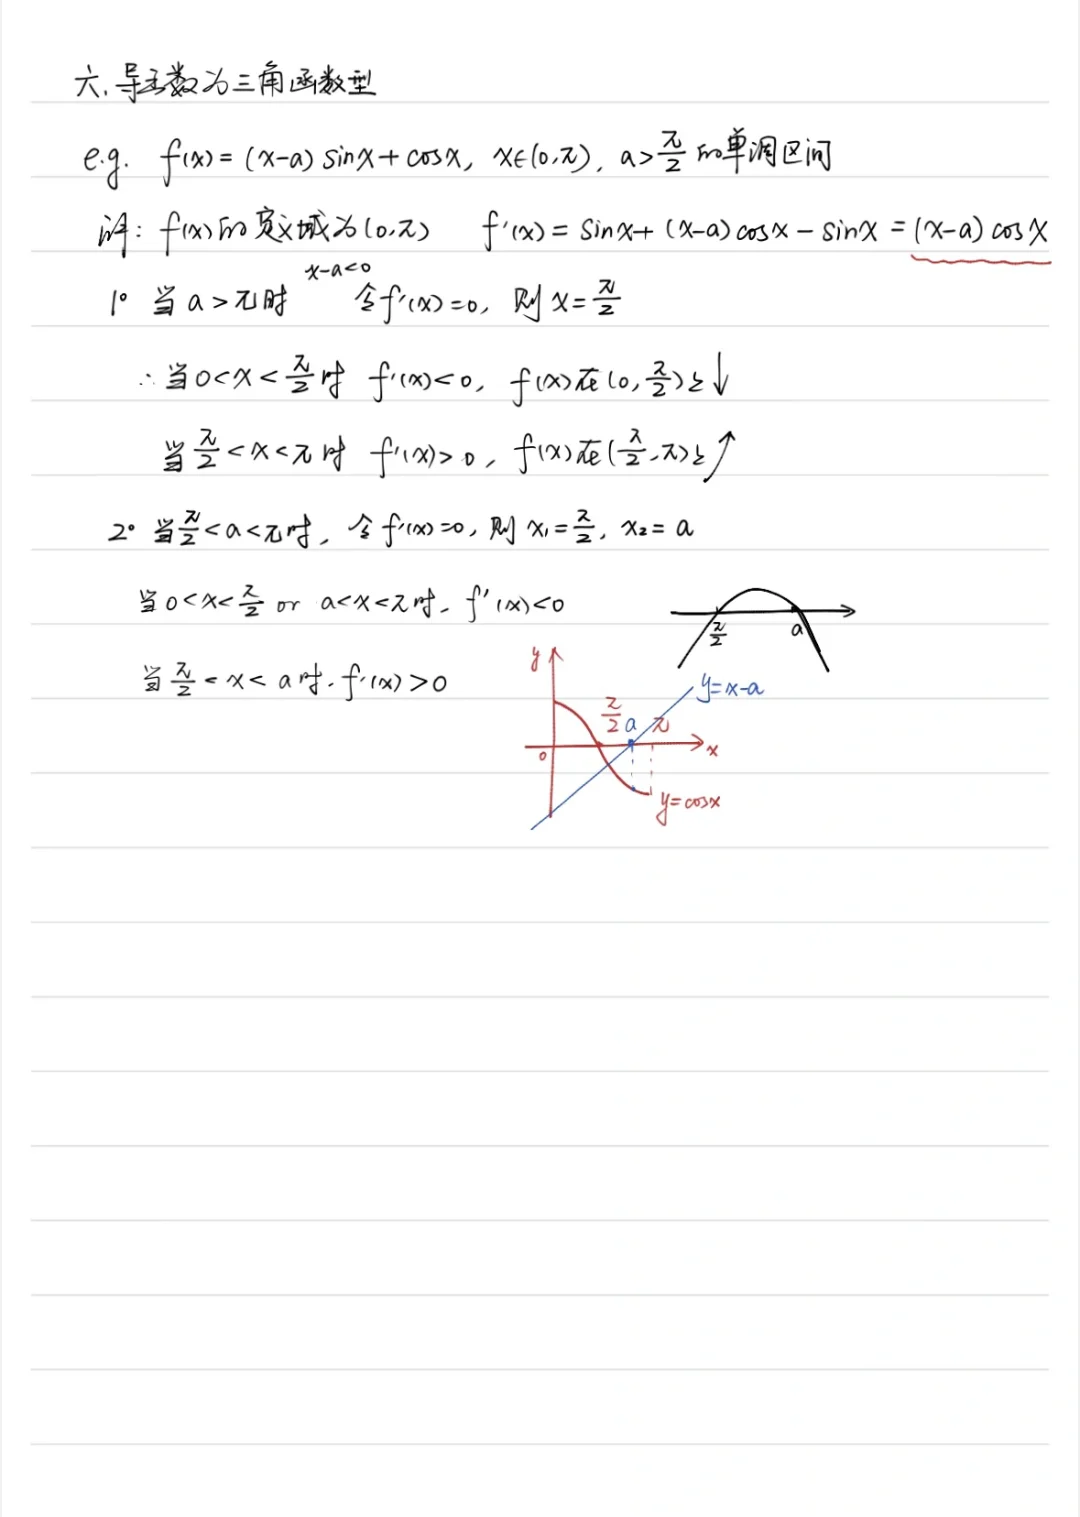 六.导函数为三角函数型
e.g. f(x)=(x-a)sinx+cosx, x∈(0,π), a>π/2的单调区间
解: f(x)的定义域为(0,π) f'(x)=sinx+(x-a)cosx-sinx=(x-a)cosx
x-a<0
1° 当a>π时 令f'(x)=0, 则x=π/2
∴当0<x<π/2时 f'(x)<0, f(x)在(0,π/2)上↓
当π/2<x<π时 f'(x)>0, f(x)在(π/2,π)上↗
2° 当π/2<a<π时, 令f'(x)=0, 则x₁=π/2, x₂=a
当0<x<π/2 or a<x<π时, f'(x)<0
π/2 a
当π/2<x<a时, f'(x)>0
y
y=x-a
π/2 a π
0 x
y=cosx